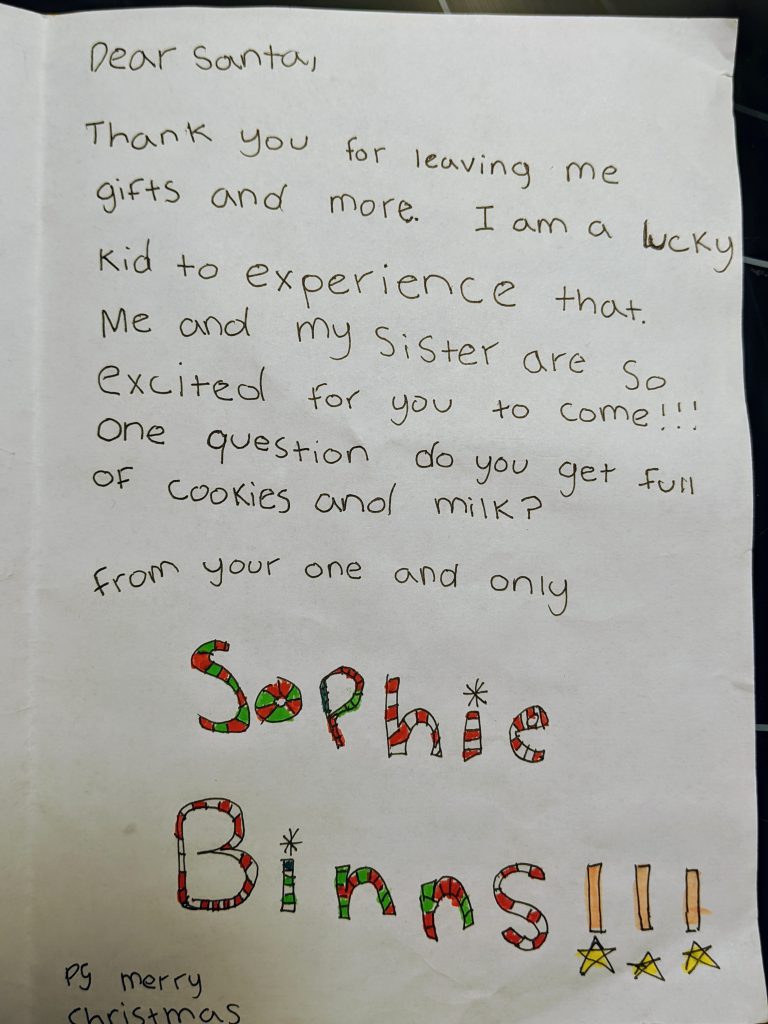 Dear Santa,
Thank you for leaving me
gifts and more. I am a lucky
kid to experience that.
Me and my sister are so
excited for you to come!!!
One question do you get full
of cookies and milk?
from your one and only
Sophie
Binns!!!
PS merry
christmas